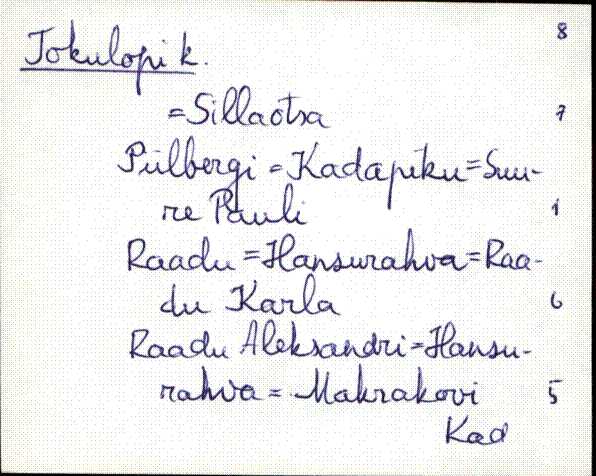 8
Tokulopi k.
=Sillaotsa 7
Piilbergi = Kadapiku = Suu-
re Pauli 1
Raadu = Hansurahva = Raa-
du Karla 6
Raadu Aleksandri = Hansu-
rahva = Makrakovi 5
Kad